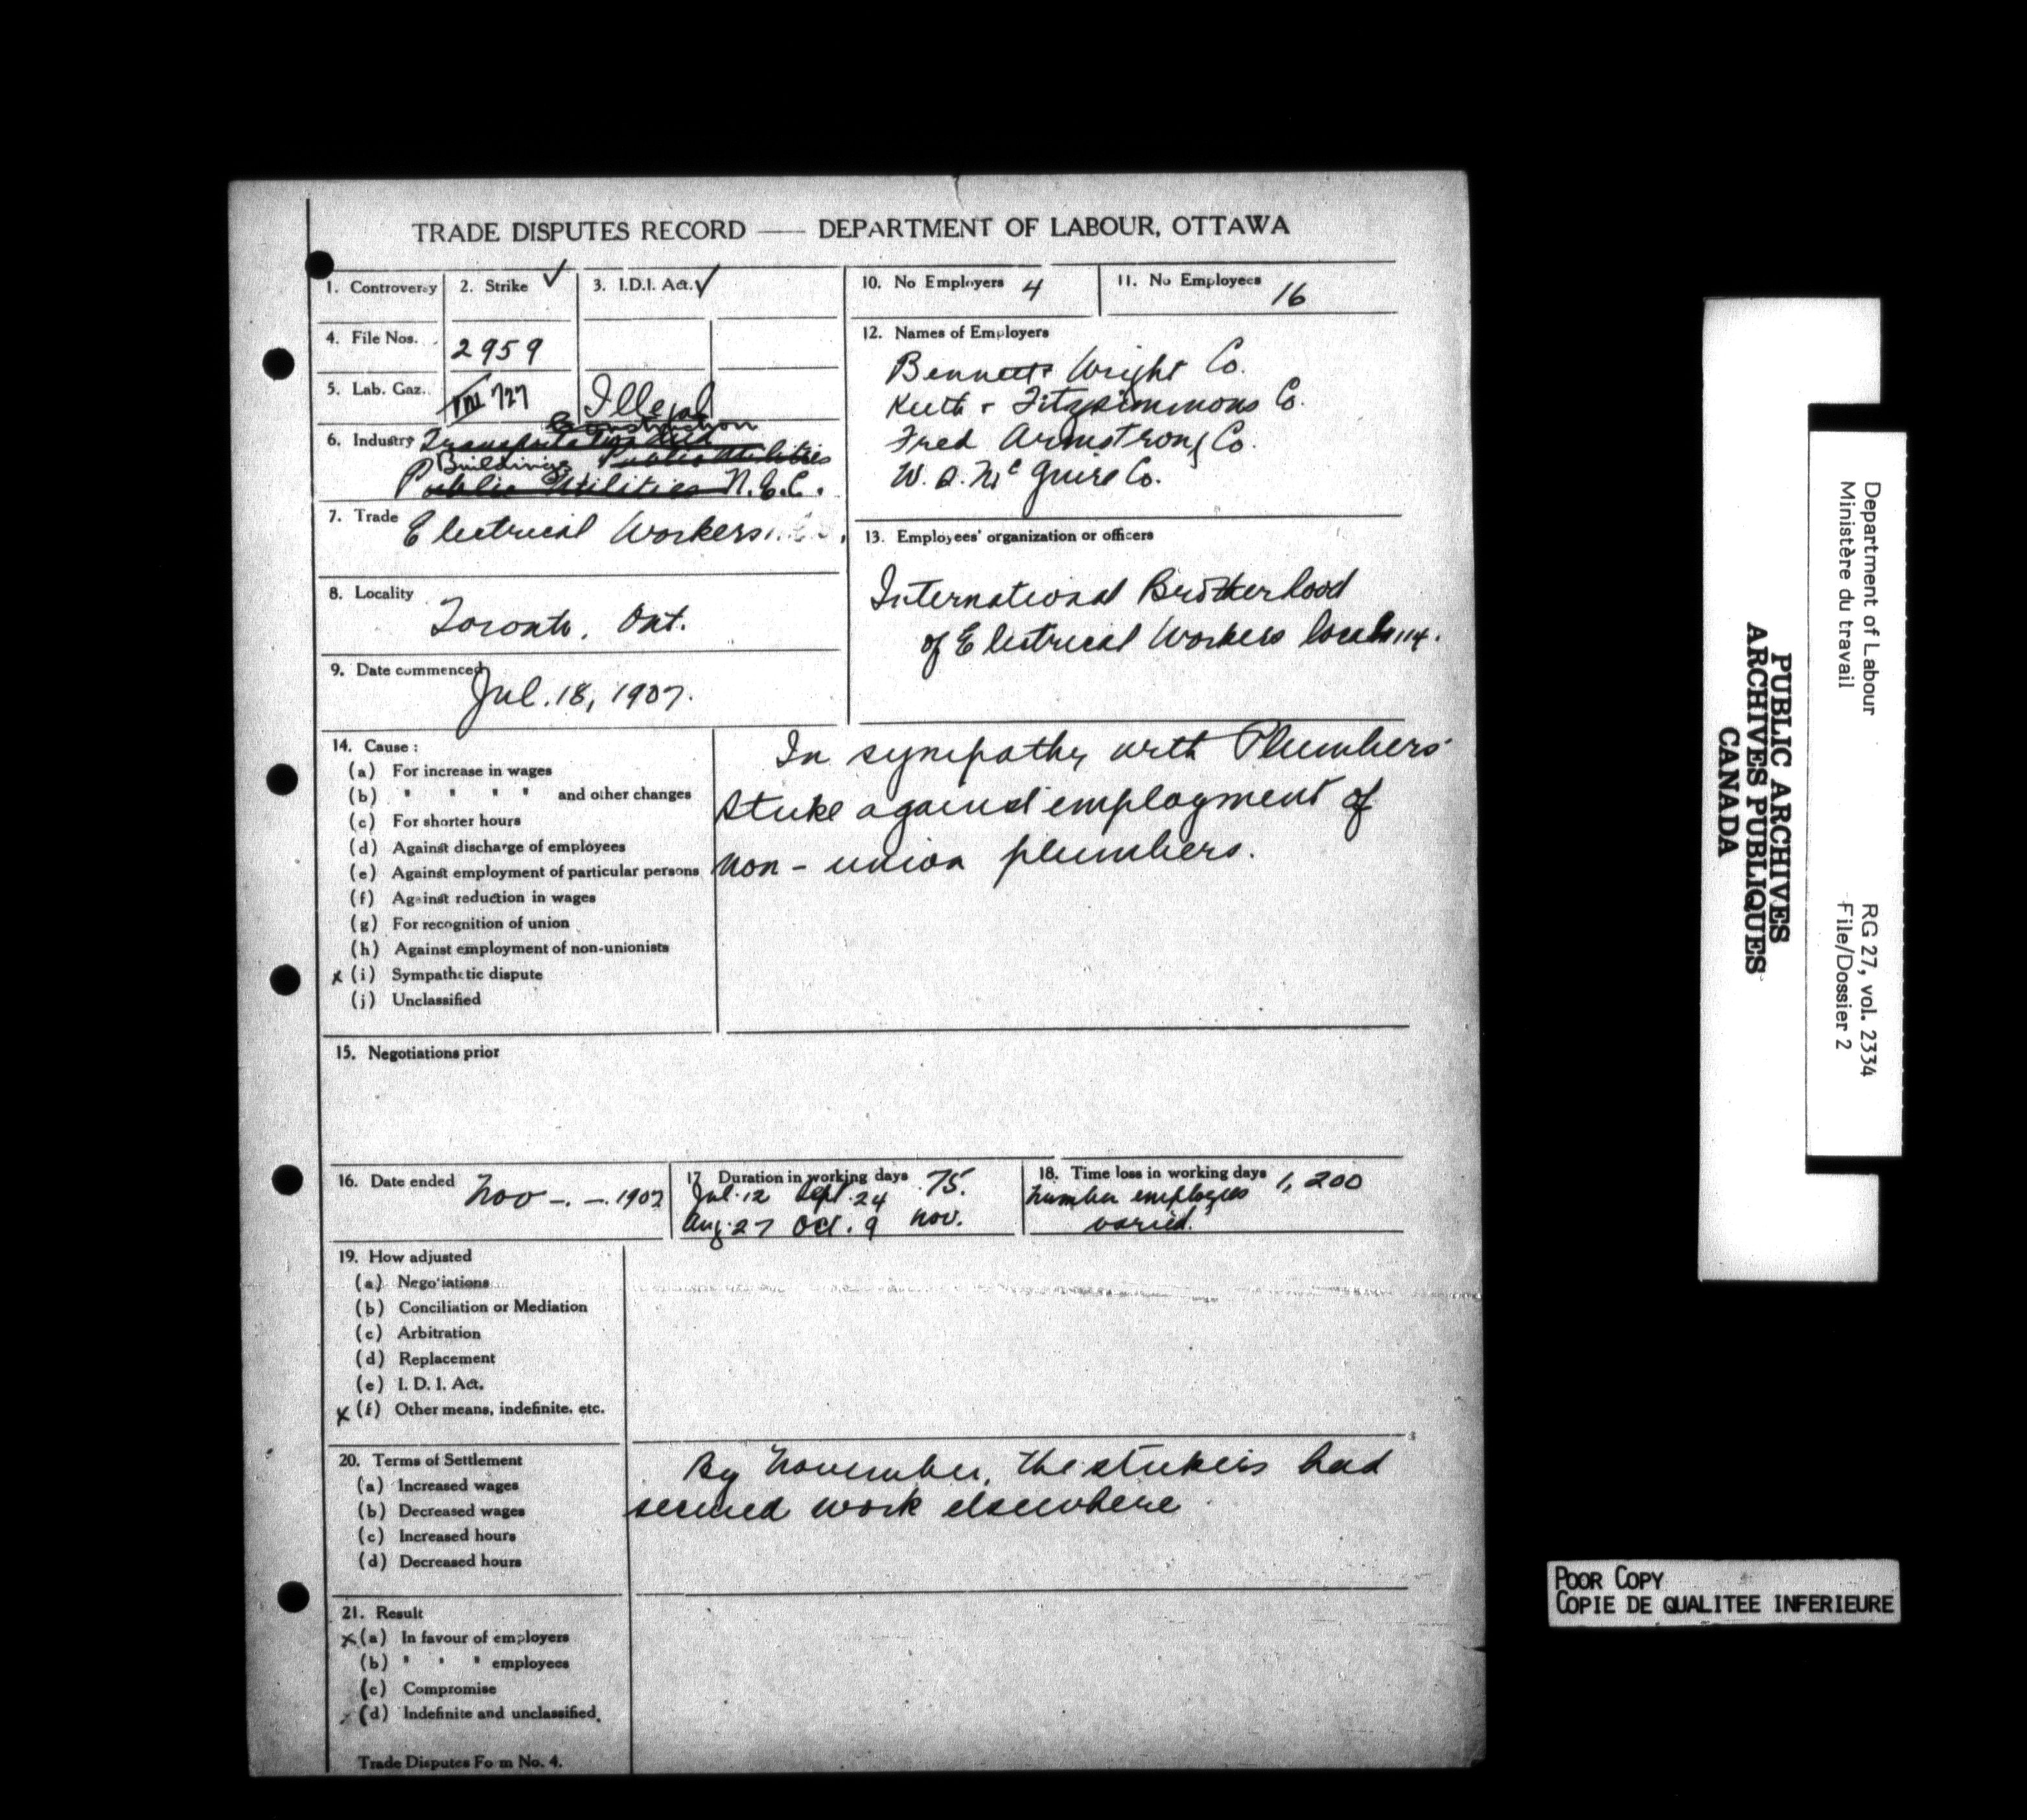 TRADE DISPUTES RECORD — DEPARTMENT OF LABOUR, OTTAWA
1. Controversy
2. Strike ✓
3. I.D.I. Act. ✓
4. File Nos. 2959
5. Lab. Gaz. VIII 727 Illegal
Construction
6. Industry
Buildings Public Utilities
Public Utilities N.E.C.
7. Trade Electrical Workers
8. Locality
Toronto, Ont.
9. Date commenced
Jul. 18, 1907.
10. No Employers 4
11. No Employees 16
12. Names of Employers
Bennett & Wright Co.
Keith & Fitzsimmons Co.
Fred Armstrong Co.
W. J. McGuire Co.
13. Employees' organization or officers
International Brotherhood
of Electrical Workers local 114.
14. Cause :
(a) For increase in wages
(b) " " " " and other changes
(c) For shorter hours
(d) Against discharge of employees
(e) Against employment of particular persons
(f) Against reduction in wages
(g) For recognition of union
(h) Against employment of non-unionists
x (i) Sympathetic dispute
(j) Unclassified
In sympathy with Plumbers'
strike against employment of
non-union plumbers.
15. Negotiations prior
16. Date ended Nov -. -. 1907
17 Duration in working days 75.
Jul. 12 Sept. 24
Aug. 27 Oct. 9 Nov.
18. Time loss in working days 1,200
Number employees
varied.
19. How adjusted
(a) Negotiations
(b) Conciliation or Mediation
(c) Arbitration
(d) Replacement
(e) I. D. I. Act.
x (f) Other means, indefinite. etc.
20. Terms of Settlement
(a) Increased wages
(b) Decreased wages
(c) Increased hours
(d) Decreased hours
By November, the strikers had
secured work elsewhere.
21. Result
x (a) In favour of employers
(b) " " " employees
(c) Compromise
(d) Indefinite and unclassified.
Trade Disputes Form No. 4.
Department of Labour
Ministère du travail
RG 27, vol. 2334
File/Dossier 2
PUBLIC ARCHIVES
ARCHIVES PUBLIQUES
CANADA
POOR COPY
COPIE DE QUALITEE INFERIEURE